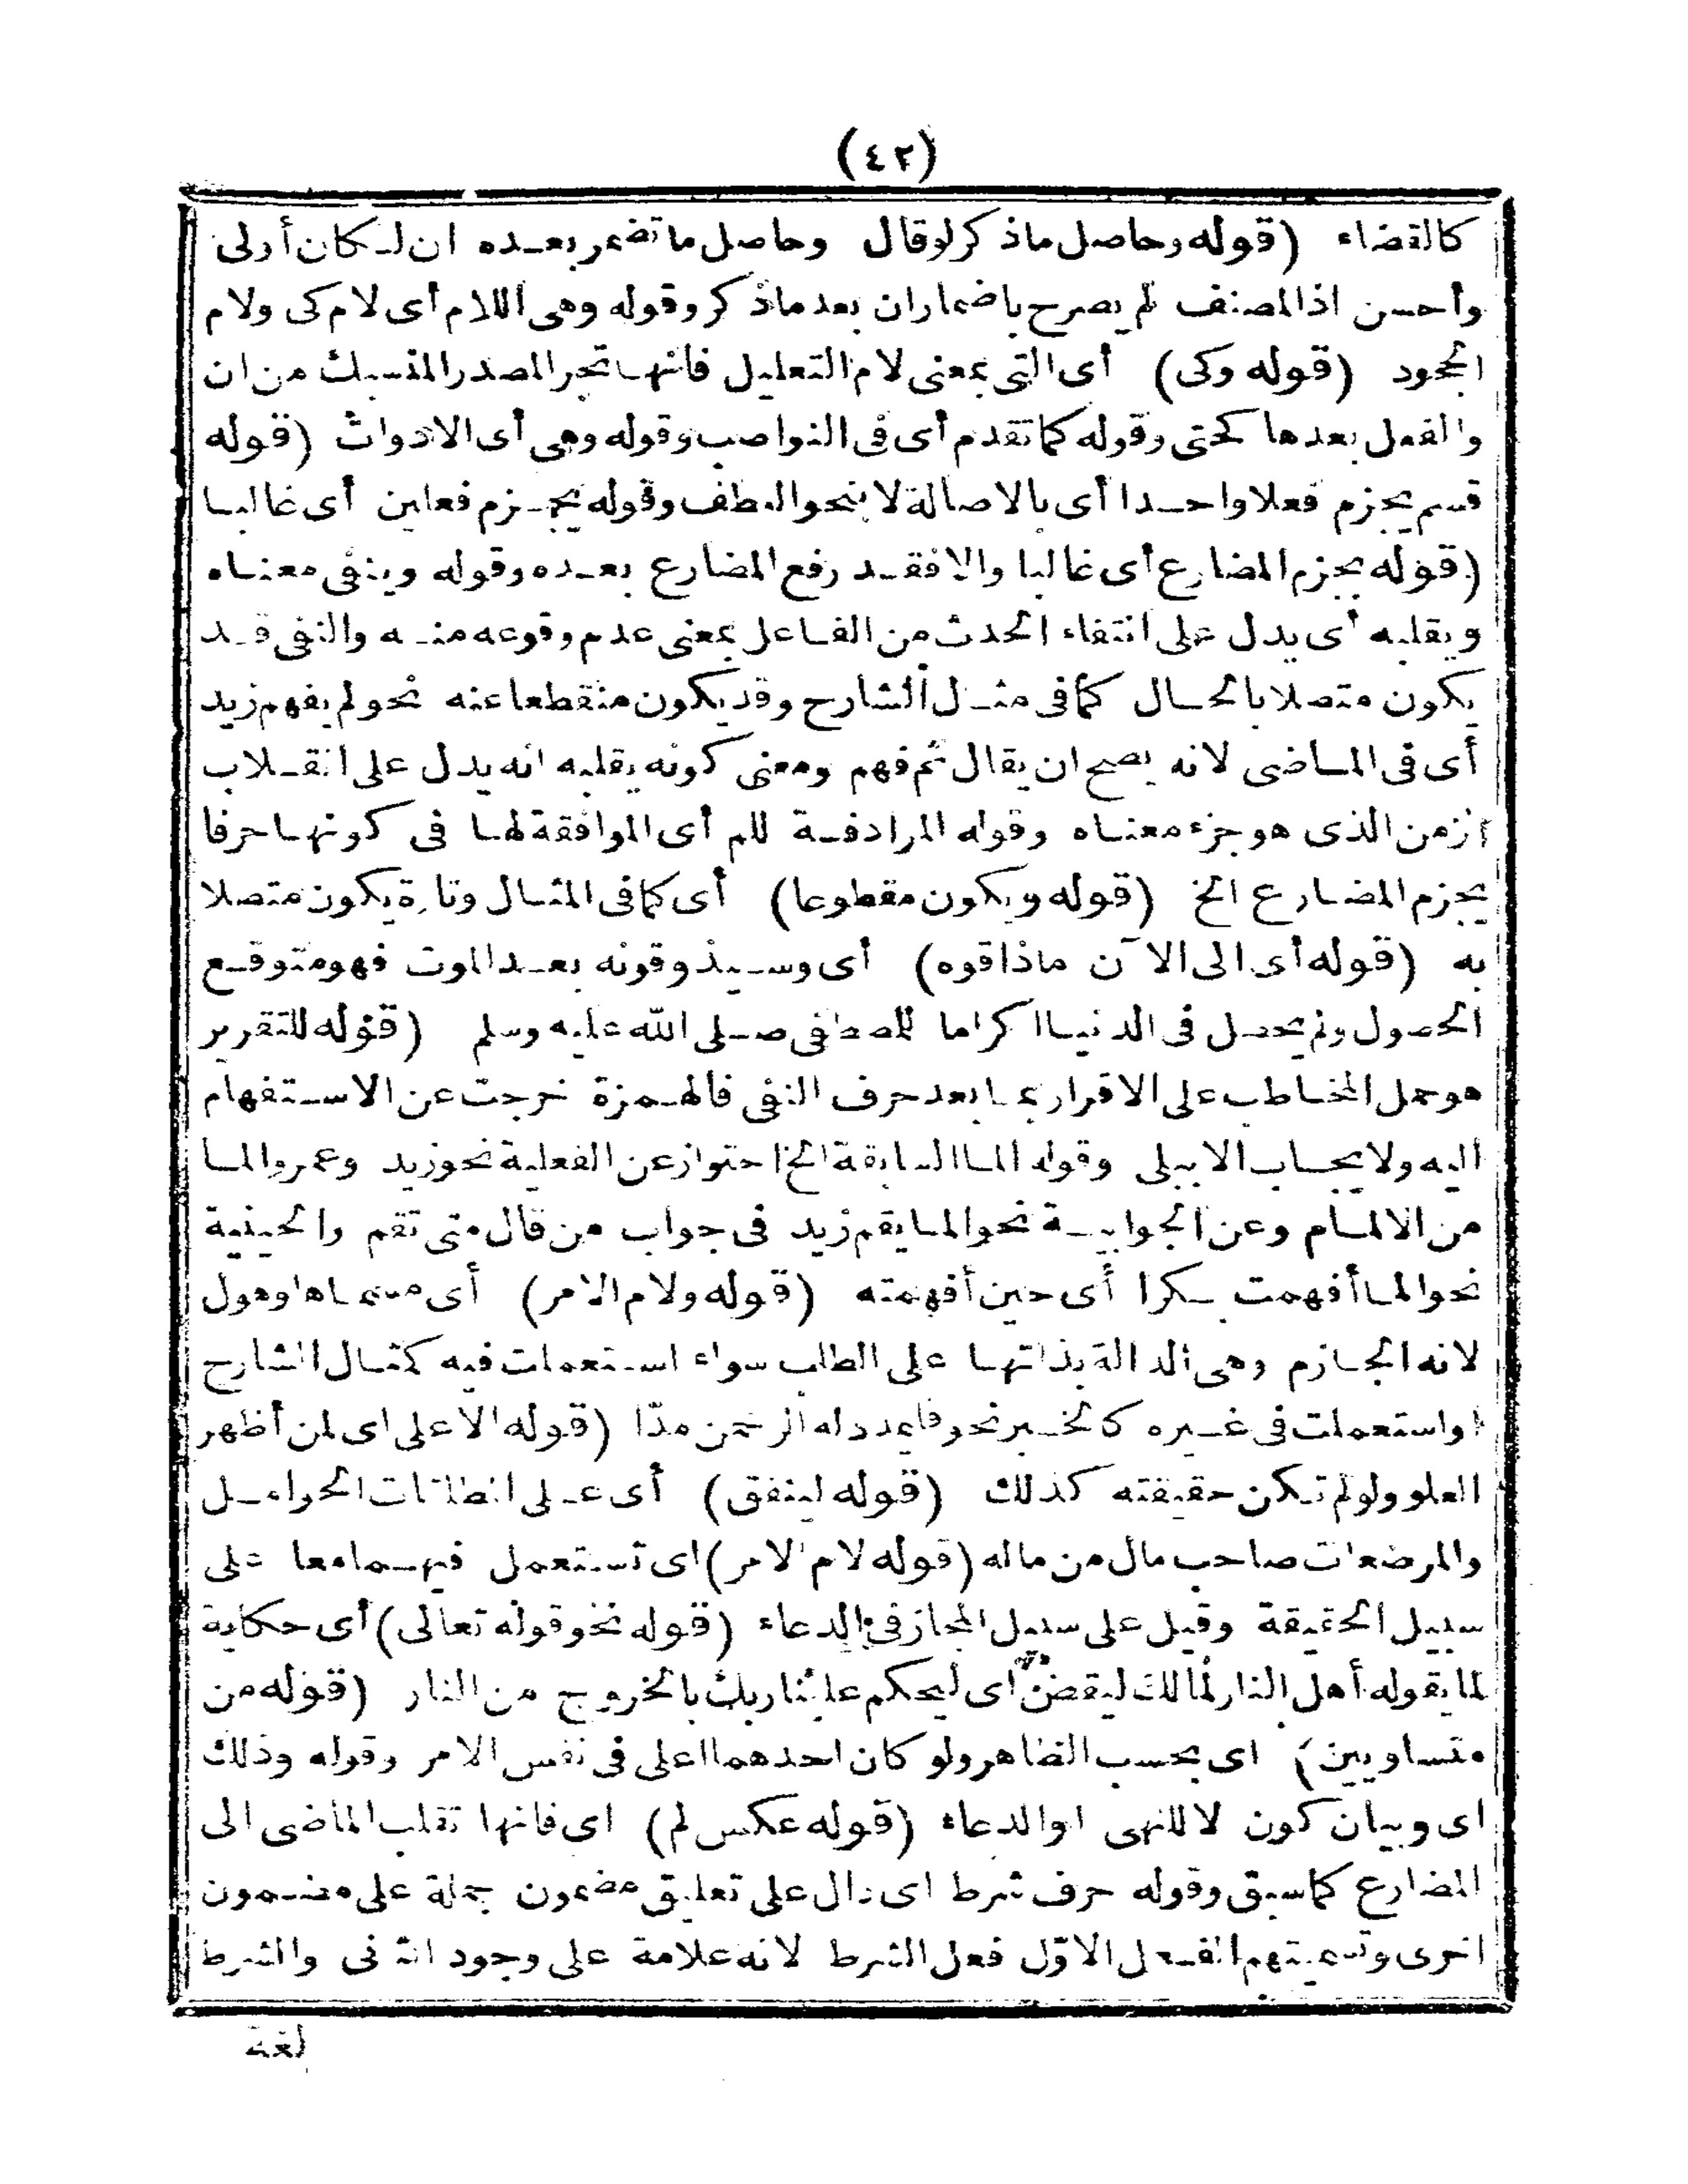 (٤٢)
كالقضاء (قوله وحاصل ماذكر لوقال وحاصل ماتضمر بعده ان لكان أولى
وأحسن اذالمصنف لم يصرح باضماران بعد ماذكر وقوله وهى اللام أى لام كى ولام
الجحود (قوله وكى) أى التى بمعنى لام التعليل فانها تجر المصدر المنسبك من ان
والفعل بعدها كحتى وقوله كما تقدم أى فى النواصب وقوله وهى أى الادوات (قوله
قسم يجزم فعلا واحدا أى بالاصالة لا بنحو العطف وقوله يجزم فعلين أى غالبا
(قوله يجزم المضارع أى غالبا والا فقد رفع المضارع بعده وقوله وينفى معناه
ويقلبه أى يدل على انتفاء الحدث من الفاعل بمعنى عدم وقوعه منه والنفى قد
يكون متصلا بالحال كما فى مثل الشارح وقد يكون منقطعا عنه نحو لم يفهم زيد
أى فى الماضى لانه يصح ان يقال ثم فهم ومعنى كونه يقلبه انه يدل على انقلاب
الزمن الذى هو جزء معناه وقوله المرادفة للم أى الموافقة لها فى كونها حرفا
يجزم المضارع الخ (قوله ويكون مقطوعا) أى كما فى المثال وتارة يكون متصلا
به (قوله أى الى الآن ماذاقوه) أى وسيذوقونه بعد الموت فهو متوقع
الحصول ولم يحصل فى الدنيا اكراما للمصطفى صلى الله عليه وسلم (قوله للتقرير
هو حمل المخاطب على الاقرار بما بعد حرف النفى فالهمزة خرجت عن الاستفهام
اليه ولا يجاب الا ببلى وقوله الما السابقة الخ احترازعن الفعلية نحو زيد وعمرو الما
من الالمام وعن الجوابية نحو الما يقم زيد فى جواب من قال متى تقم والحينية
نحو الما أفهمت بكرا أى حين أفهمته (قوله ولام الامر) أى مسماها وهو ل
لانه الجازم وهى الدالة بذاتها على الطلب سواء استعملت فيه كمثال الشارح
او استعملت فى غيره كالخبر نحو فليمدد له الرحمن مدّا (قوله الاعلى اى لمن أظهر
العلو ولو لم تكن حقيقته كذلك (قوله لينفق) أى على المطلقات الحوامل
والمرضعات صاحب مال من ماله (قوله لام الامر) اى تستعمل فيهما معا على
سبيل الحقيقة وقيل على سبيل المجاز فى الدعاء (قوله نحو قوله تعالى) أى حكاية
لما يقوله أهل النار لمالك ليقض اى ليحكم علينا ربك بالخروج من النار (قوله من
متساويين) اى بحسب الظاهر ولو كان احدهما اعلى فى نفس الامر وقوله وذلك
اى وبيان كون لا للنهى او الدعاء (قوله عكس لم) اى فانها تقلب الماضى الى
المضارع كما سبق وقوله حرف شرط اى دال على تعليق مضمون جملة على مضمون
اخرى وتسميتهم الفعل الاوّل فعل الشرط لانه علامة على وجود الثانى والشرط
لغة